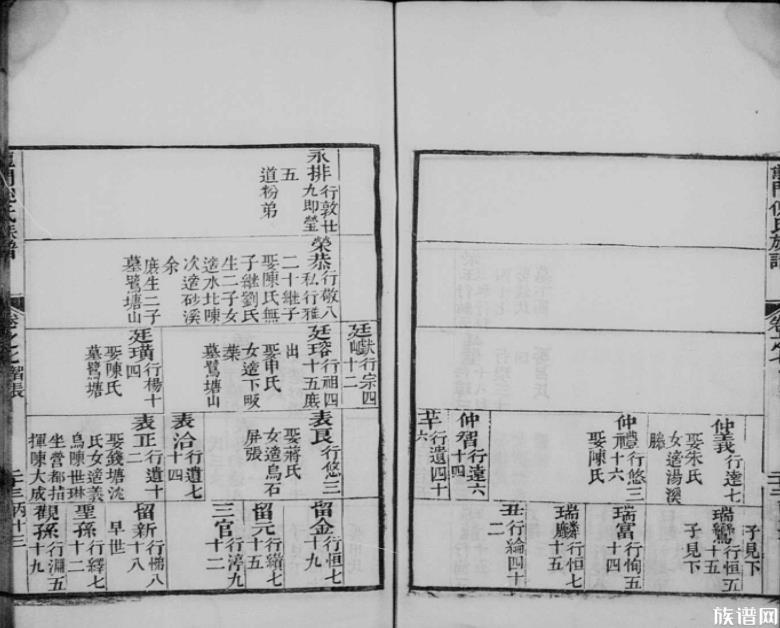 仲義行達七
娶朱氏
女適湯溪
滕
仲禮行悠三
十六
娶陳氏
仲智行達六
十四
芉行遺四十
六
子見下
瑞鸞行恒五
十五
子見下
瑞富行恂五
十四
瑞麟行恒七
十五
丑行論四十
二
永排行敦廿
九即瑩
五
道粉弟
榮恭行敬八
私行雅
二十繼子
娶陳氏無
子繼劉氏
生二子女
適水北陳
次適砂溪
余
庻生二子
墓鷺塘山
廷巘行宗四
十二
廷瑢行祖四
十五庻
出
娶申氏
女適下畈
葉
墓鷺塘山
廷璜行楊十
四
娶陳氏
墓鷺塘
表良行悠三
娶蔣氏
女適烏石
屏張
表洽行遺七
十四
表正行遺十
二
娶錢塘沈
氏女適義
烏陳世琳
坐營都指
揮陳大成
留金行恒七
十九
留元行續七
十五
三官行渟九
十二
留新行悌八
十八
早世
聖孫行繹七
十四
觀孫行淵五
十九
二十三丙十三
族谱网